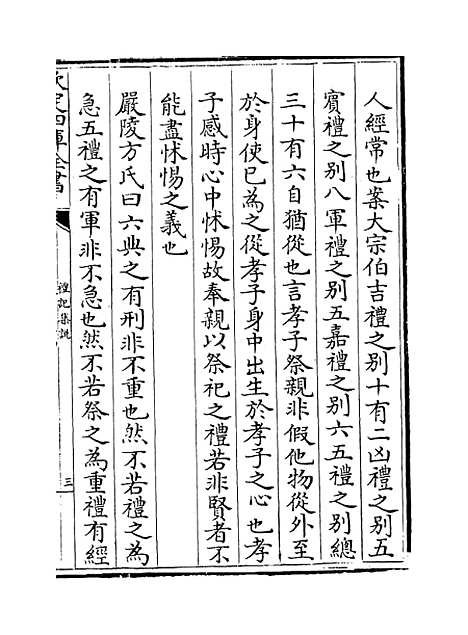 人經常也案大宗伯吉禮之别十有二凶禮之别五
賓禮之别八軍禮之别五嘉禮之别六五禮之别總
三十有六自猶從也言孝子祭親非假他物從外至
於身使已為之從孝子身中出生於孝子之心也孝
子感時心中怵惕故奉親以祭祀之禮若非賢者不
能盡怵惕之義也
嚴陵方氏曰六典之有刑非不重也然不若禮之為
急五禮之有軍非不急也然不若祭之為重禮有經
欽定四庫全書
禮記集說
三